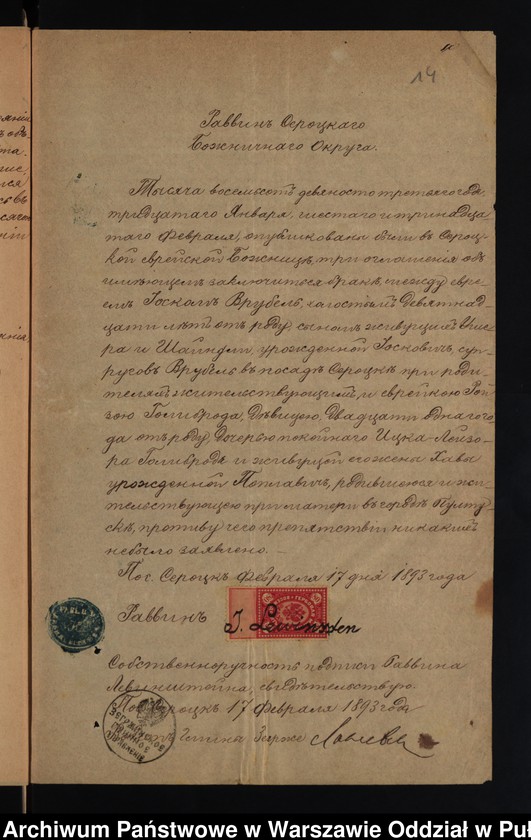 14
Раввинъ Сероцкаго
Божничнаго Округа.
Тысяча восемьсотъ девяносто третьяго года,
тридцатаго Января, шестаго и тринадца
таго Февраля, опубликованы были въ Сероц-
кой еврейской Божницѣ, три оглашения объ
имѣющемъ заключиться бракѣ, между евре-
емъ Госкомъ Врубель, холостымъ Девятнад-
цати лѣтъ отъ роду сыномъ живущихъ
ра и Шайндли, урожденной Госковичъ, суп-
руговъ Врубель въ посадѣ Сероцкѣ при роди-
теляхъ жительствующимъ и еврейкою Рой-
зою Голиброда, Дѣвицею, Двадцати одного го-
да отъ роду, Дочерью покойнаго Ицка-Лейзо-
ра Голибродъ и живущей его жена Хава
урожденной Поплавичъ, родившеюся и жи-
тельствующею при матери въ городѣ Пулту-
скѣ, противу чего препятствій никакихъ
небыло заявлено. —
Пос. Сероцкъ Февраля 17 дня 1893 года
Раввинъ
Собственноручность подписи Раввина
Левинштейна, свидѣтельствую.
Пос. Сероцкъ 17 Февраля 1893 года
Гмины Зегрже
Archiwum Państwowe w Warszawie Oddział w Puł